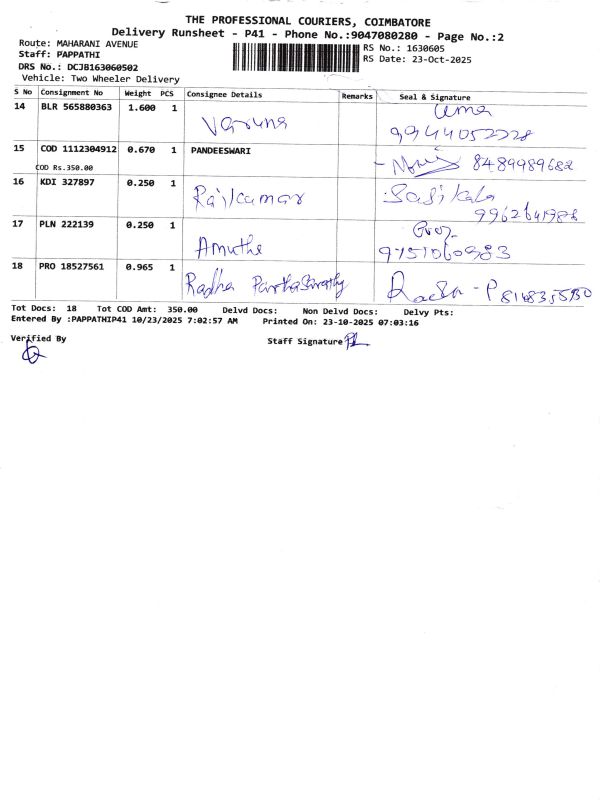 THE PROFESSIONAL COURIERS, COIMBATORE
Delivery Runsheet - P41 - Phone No.:9047080280 - Page No.:2
Route: MAHARANI AVENUE
Staff: PAPPATHI
DRS No.: DCJB163060502
Vehicle: Two Wheeler Delivery
RS No.: 1630605
RS Date: 23-Oct-2025
S No Consignment No Weight PCS Consignee Details Remarks Seal & Signature
14 BLR 565880363 1.600 1 Varuna Uma
9944052228
15 COD 1112304912 0.670 1 PANDEESWARI
COD Rs.350.00 8489989682
16 KDI 327897 0.250 1 Rajkumar Sasikala
9962641982
17 PLN 222139 0.250 1 Amutha
9751060983
18 PRO 18527561 0.965 1 Radha Parthasarathy Radha - P
Tot Docs: 18 Tot COD Amt: 350.00 Delvd Docs: Non Delvd Docs: Delvy Pts:
Entered By :PAPPATHIP41 10/23/2025 7:02:57 AM Printed On: 23-10-2025 07:03:16
Verified By Staff Signature